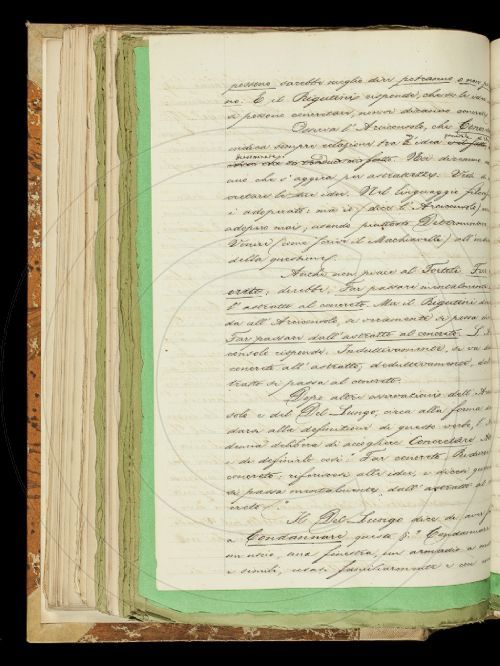 possono sarebbe meglio dire potranno o non po
no. E il Rigutini risponde, che se le idee
si possono concretare, non si diranno concrete
Osserva l'Arciconsolo, che Concre
indica sempre relazione tra l'idea
fatto. Noi diciamo
uno che s'aggira per astrattezze. Veda di
cretare le sue idee. Nel linguaggio filoso
è adoperato: ma io (dice l'Arciconsolo) non
adopero mai, usando piuttosto Determinare
Venire (come scrive il Machiavelli) all'indi
della questione.
Anche non piace al Tortoli Far
creto; direbbe: Far passare mentalmente
l'astratto al concreto. Ma il Rigutini do
da all'Arciconsolo, se veramente si possa di
Far passare dall'astratto al concreto. L'Ar
consolo risponde: Induttivamente, si va da
concreto all'astratto; deduttivamente, dal
tratto si passa al concreto.
Dopo altre osservazioni dell'Ar
solo e del Del-Lungo, circa alla forma da
darsi alla definizione di questo verbo, l'Ac
demia delibera di accogliere Concretare At
e di definirlo così: Far concreto, Ridurre
concreto; riferiscesi alle idee, e dicesi qua
si passa mentalmente dall'astratto al
creto."
Il Del-Lungo dice di aver f
a Condannare questo §: "Condannare
un uscio, una finestra, un armadio e
e simili, usasi familiarmente e con